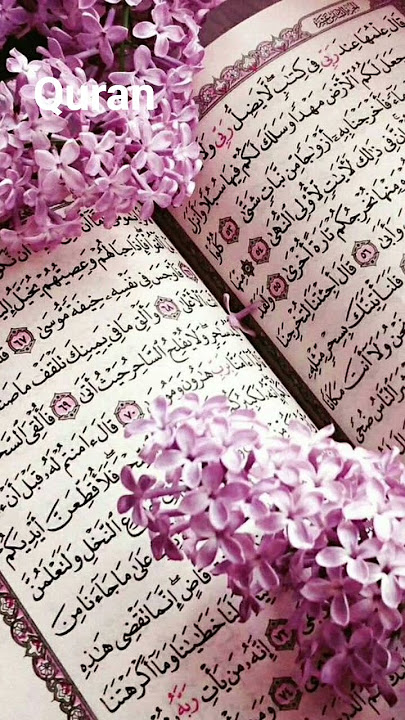 Quran
قَالَ عِلْمُهَا عِندَ رَبِّي فِي كِتَٰبٍ لَّا يَضِلُّ رَبِّي وَلَا
جَعَلَ لَكُمُ ٱلْأَرْضَ مَهْدًا وَسَلَكَ لَكُمْ فِيهَا سُبُلًا وَأَنزَلَ
مَآءً فَأَخْرَجْنَا بِهِۦٓ أَزْوَٰجًا مِّن نَّبَاتٍ شَتَّىٰ ٥٣ كُلُوا۟
إِنَّ فِي ذَٰلِكَ لَءَايَٰتٍ لِّأُو۟لِي ٱلنُّهَىٰ ٥٤
وَمِنْهَا نُخْرِجُكُمْ تَارَةً أُخْرَىٰ ٥٥ وَلَقَدْ
وَأَبَىٰ ٥٦ قَالَ أَجِئْتَنَا لِتُخْرِجَنَا
فَلَنَأْتِيَنَّكَ بِسِحْرٍ مِّثْلِهِۦ
نَحْنُ وَلَآ أَنتَ مَكَانًا
ٱلنَّاسُ ضُحًى
فَإِذَا حِبَالُهُمْ وَعِصِيُّهُمْ يُخَيَّلُ إِلَيْهِ
فَأَوْجَسَ فِي نَفْسِهِۦ خِيفَةً مُّوسَىٰ ٦٧
ٱلْأَعْلَىٰ ٦٨ وَأَلْقِ مَا فِي يَمِينِكَ تَلْقَفْ مَا صَنَعُوٓا۟
وَلَا يُفْلِحُ ٱلسَّاحِرُ حَيْثُ أَتَىٰ ٦٩ فَأُلْقِيَ ٱلسَّحَرَةُ
بِرَبِّ هَٰرُونَ وَمُوسَىٰ ٧٠ قَالَ ءَامَنتُمْ لَهُۥ قَبْلَ أَنْ
فَلَأُقَطِّعَنَّ أَيْدِيَكُمْ
ٱلنَّخْلِ وَلَتَعْلَمُنَّ
عَلَىٰ مَا جَآءَنَا مِنَ
قَاضٍ إِنَّمَا تَقْضِي هَٰذِهِ
لَنَا خَطَٰيَٰنَا وَمَآ أَكْرَهْتَنَا
٧٣ إِنَّهُۥ مَن يَأْتِ رَبَّهُۥ
٧٤